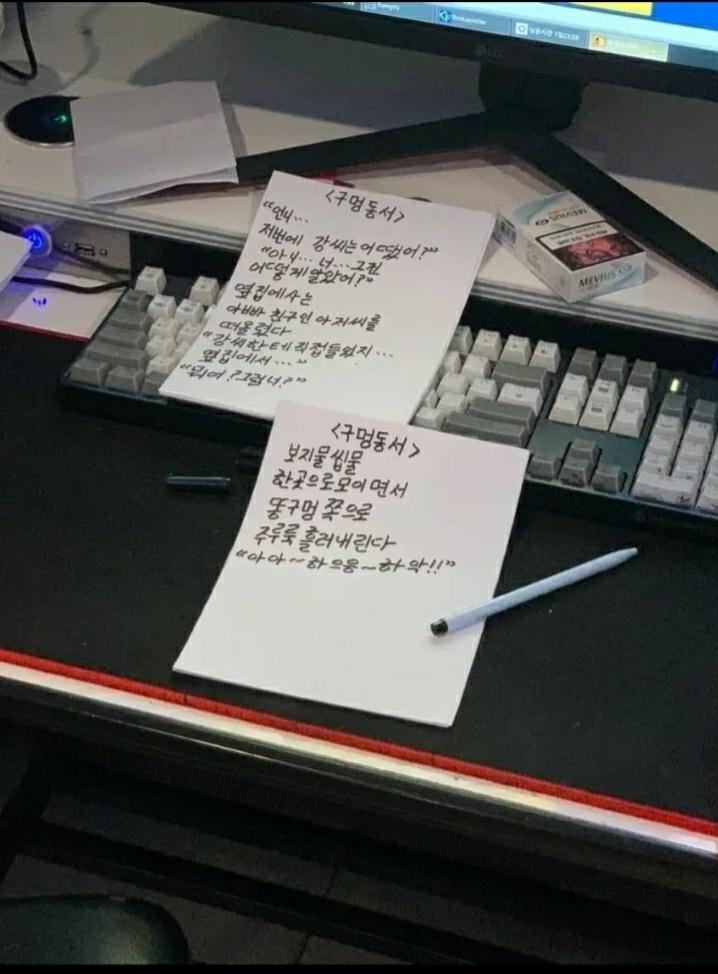 LG
MEVIUS
MEVIUS
<구멍동서>
"언니...
저번에 강씨는 어땠어?"
"아니... 너... 그걸
어떻게 알았어?"
옆집에사는
아빠 친구인 아저씨를
떠올렸다
"강씨한테 직접들었지...
옆집에서..."
"뭐여?그럼너?"
<구멍동서>
보지물씹물
한곳으로모이면서
똥구멍 쪽으로
주루룩 흘러내린다
"아아~하으응~하악!!"